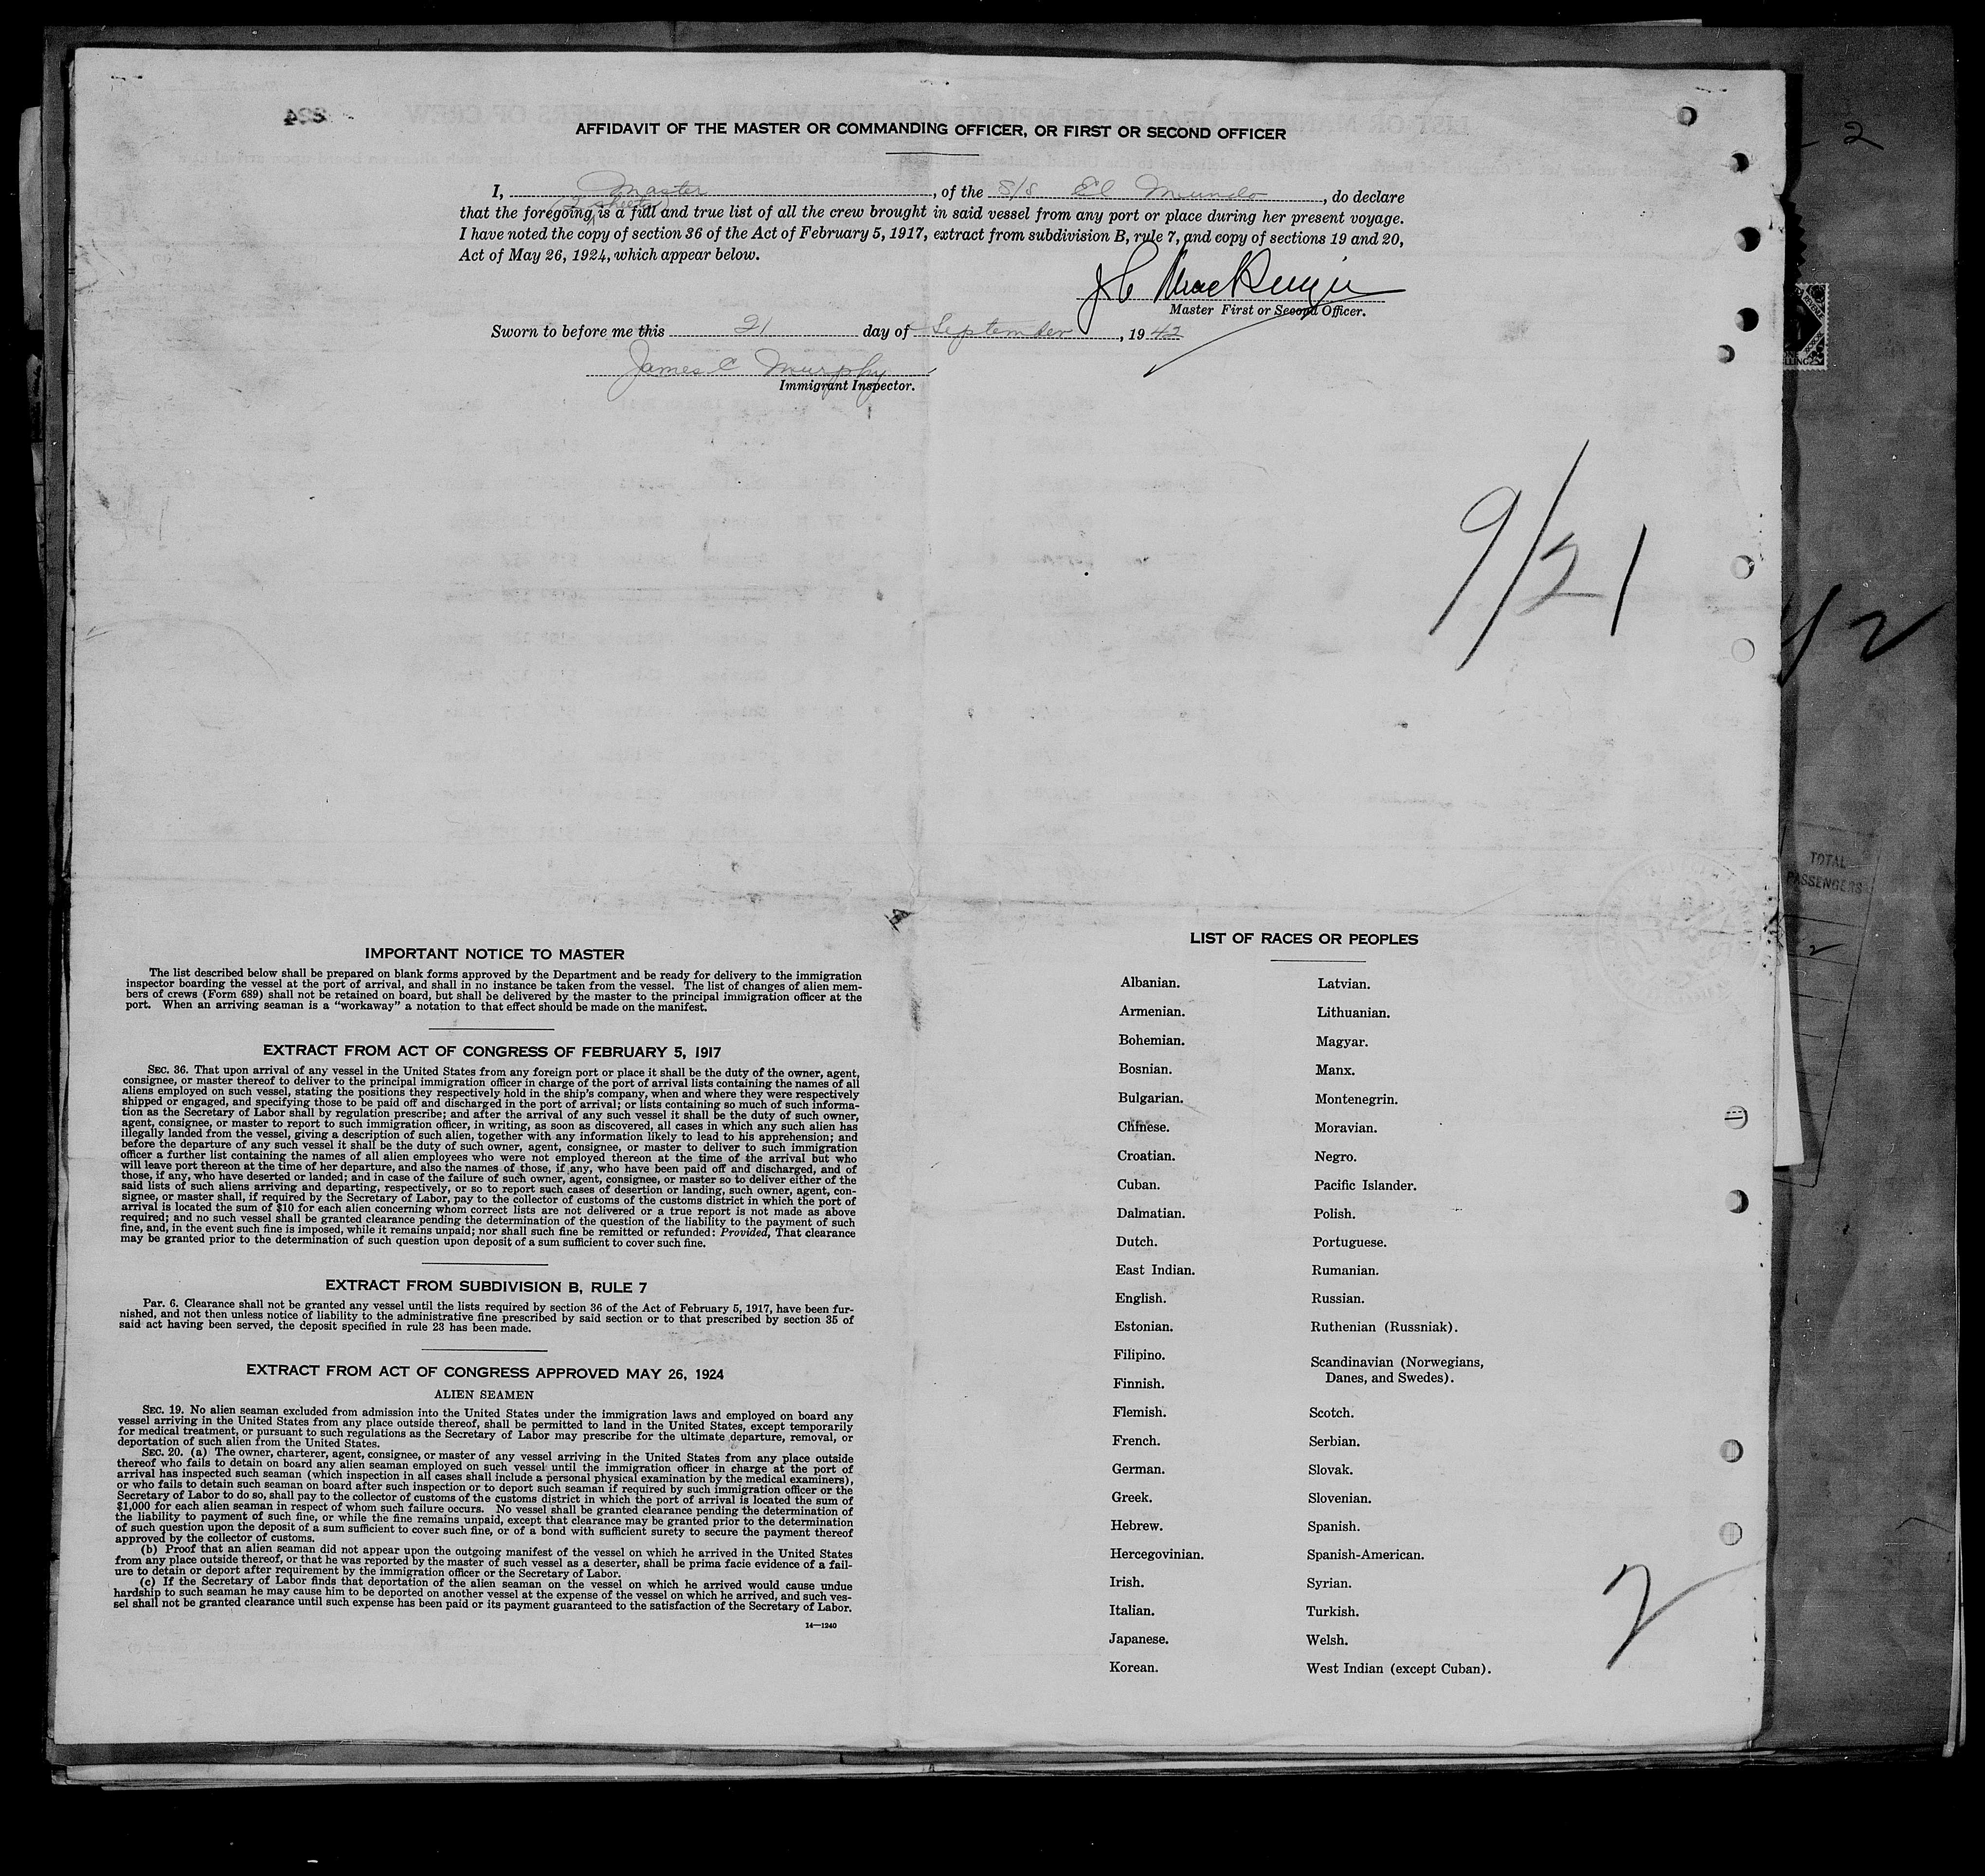 AFFIDAVIT OF THE MASTER OR COMMANDING OFFICER, OR FIRST OR SECOND OFFICER
I, Master, of the S/S El Mundo, do declare
(2 sheets)
that the foregoing is a full and true list of all the crew brought in said vessel from any port or place during her present voyage.
I have noted the copy of section 36 of the Act of February 5, 1917, extract from subdivision B, rule 7, and copy of sections 19 and 20,
Act of May 26, 1924, which appear below.
J C MacKenzie
Master First or Second Officer.
Sworn to before me this 21 day of September, 1942
James C Murphy
Immigrant Inspector.
9/21
2
42
TOTAL
PASSENGERS
2
IMPORTANT NOTICE TO MASTER
The list described below shall be prepared on blank forms approved by the Department and be ready for delivery to the immigration
inspector boarding the vessel at the port of arrival, and shall in no instance be taken from the vessel. The list of changes of alien mem-
bers of crews (Form 689) shall not be retained on board, but shall be delivered by the master to the principal immigration officer at the
port. When an arriving seaman is a "workaway" a notation to that effect should be made on the manifest.
EXTRACT FROM ACT OF CONGRESS OF FEBRUARY 5, 1917
SEC. 36. That upon arrival of any vessel in the United States from any foreign port or place it shall be the duty of the owner, agent,
consignee, or master thereof to deliver to the principal immigration officer in charge of the port of arrival lists containing the names of all
aliens employed on such vessel, stating the positions they respectively hold in the ship's company, when and where they were respectively
shipped or engaged, and specifying those to be paid off and discharged in the port of arrival; or lists containing so much of such informa-
tion as the Secretary of Labor shall by regulation prescribe; and after the arrival of any such vessel it shall be the duty of such owner,
agent, consignee, or master to report to such immigration officer, in writing, as soon as discovered, all cases in which any such alien has
illegally landed from the vessel, giving a description of such alien, together with any information likely to lead to his apprehension; and
before the departure of any such vessel it shall be the duty of such owner, agent, consignee, or master to deliver to such immigration
officer a further list containing the names of all alien employees who were not employed thereon at the time of the arrival but who
will leave port thereon at the time of her departure, and also the names of those, if any, who have been paid off and discharged, and of
those, if any, who have deserted or landed; and in case of the failure of such owner, agent, consignee, or master so to deliver either of the
said lists of such aliens arriving and departing, respectively, or so to report such cases of desertion or landing, such owner, agent, con-
signee, or master shall, if required by the Secretary of Labor, pay to the collector of customs of the customs district in which the port of
arrival is located the sum of $10 for each alien concerning whom correct lists are not delivered or a true report is not made as above
required; and no such vessel shall be granted clearance pending the determination of the question of the liability to the payment of such
fine, and, in the event such fine is imposed, while it remains unpaid; nor shall such fine be remitted or refunded: Provided, That clearance
may be granted prior to the determination of such question upon deposit of a sum sufficient to cover such fine.
EXTRACT FROM SUBDIVISION B, RULE 7
PAR. 6. Clearance shall not be granted any vessel until the lists required by section 36 of the Act of February 5, 1917, have been fur-
nished, and not then unless notice of liability to the administrative fine prescribed by said section or to that prescribed by section 35 of
said act having been served, the deposit specified in rule 23 has been made.
EXTRACT FROM ACT OF CONGRESS APPROVED MAY 26, 1924
ALIEN SEAMEN
SEC. 19. No alien seaman excluded from admission into the United States under the immigration laws and employed on board any
vessel arriving in the United States from any place outside thereof, shall be permitted to land in the United States, except temporarily
for medical treatment, or pursuant to such regulations as the Secretary of Labor may prescribe for the ultimate departure, removal, or
deportation of such alien from the United States.
SEC. 20. (a) The owner, charterer, agent, consignee, or master of any vessel arriving in the United States from any place outside
thereof who fails to detain on board any alien seaman employed on such vessel until the immigration officer in charge at the port of
arrival has inspected such seaman (which inspection in all cases shall include a personal physical examination by the medical examiners),
or who fails to detain such seaman on board after such inspection or to deport such seaman if required by such immigration officer or the
Secretary of Labor to do so, shall pay to the collector of customs of the customs district in which the port of arrival is located the sum of
$1,000 for each alien seaman in respect of whom such failure occurs. No vessel shall be granted clearance pending the determination of
the liability to payment of such fine, or while the fine remains unpaid, except that clearance may be granted prior to the determination
of such question upon the deposit of a sum sufficient to cover such fine, or of a bond with sufficient surety to secure the payment thereof
approved by the collector of customs.
(b) Proof that an alien seaman did not appear upon the outgoing manifest of the vessel on which he arrived in the United States
from any place outside thereof, or that he was reported by the master of such vessel as a deserter, shall be prima facie evidence of a fail-
ure to detain or deport after requirement by the immigration officer or the Secretary of Labor.
(c) If the Secretary of Labor finds that deportation of the alien seaman on the vessel on which he arrived would cause undue
hardship to such seaman he may cause him to be deported on another vessel at the expense of the vessel on which he arrived, and such ves-
sel shall not be granted clearance until such expense has been paid or its payment guaranteed to the satisfaction of the Secretary of Labor.
14—1240
LIST OF RACES OR PEOPLES
Albanian.
Armenian.
Bohemian.
Bosnian.
Bulgarian.
Chinese.
Croatian.
Cuban.
Dalmatian.
Dutch.
East Indian.
English.
Estonian.
Filipino.
Finnish.
Flemish.
French.
German.
Greek.
Hebrew.
Hercegovinian.
Irish.
Italian.
Japanese.
Korean.
Latvian.
Lithuanian.
Magyar.
Manx.
Montenegrin.
Moravian.
Negro.
Pacific Islander.
Polish.
Portuguese.
Rumanian.
Russian.
Ruthenian (Russniak).
Scandinavian (Norwegians,
Danes, and Swedes).
Scotch.
Serbian.
Slovak.
Slovenian.
Spanish.
Spanish-American.
Syrian.
Turkish.
Welsh.
West Indian (except Cuban).
2